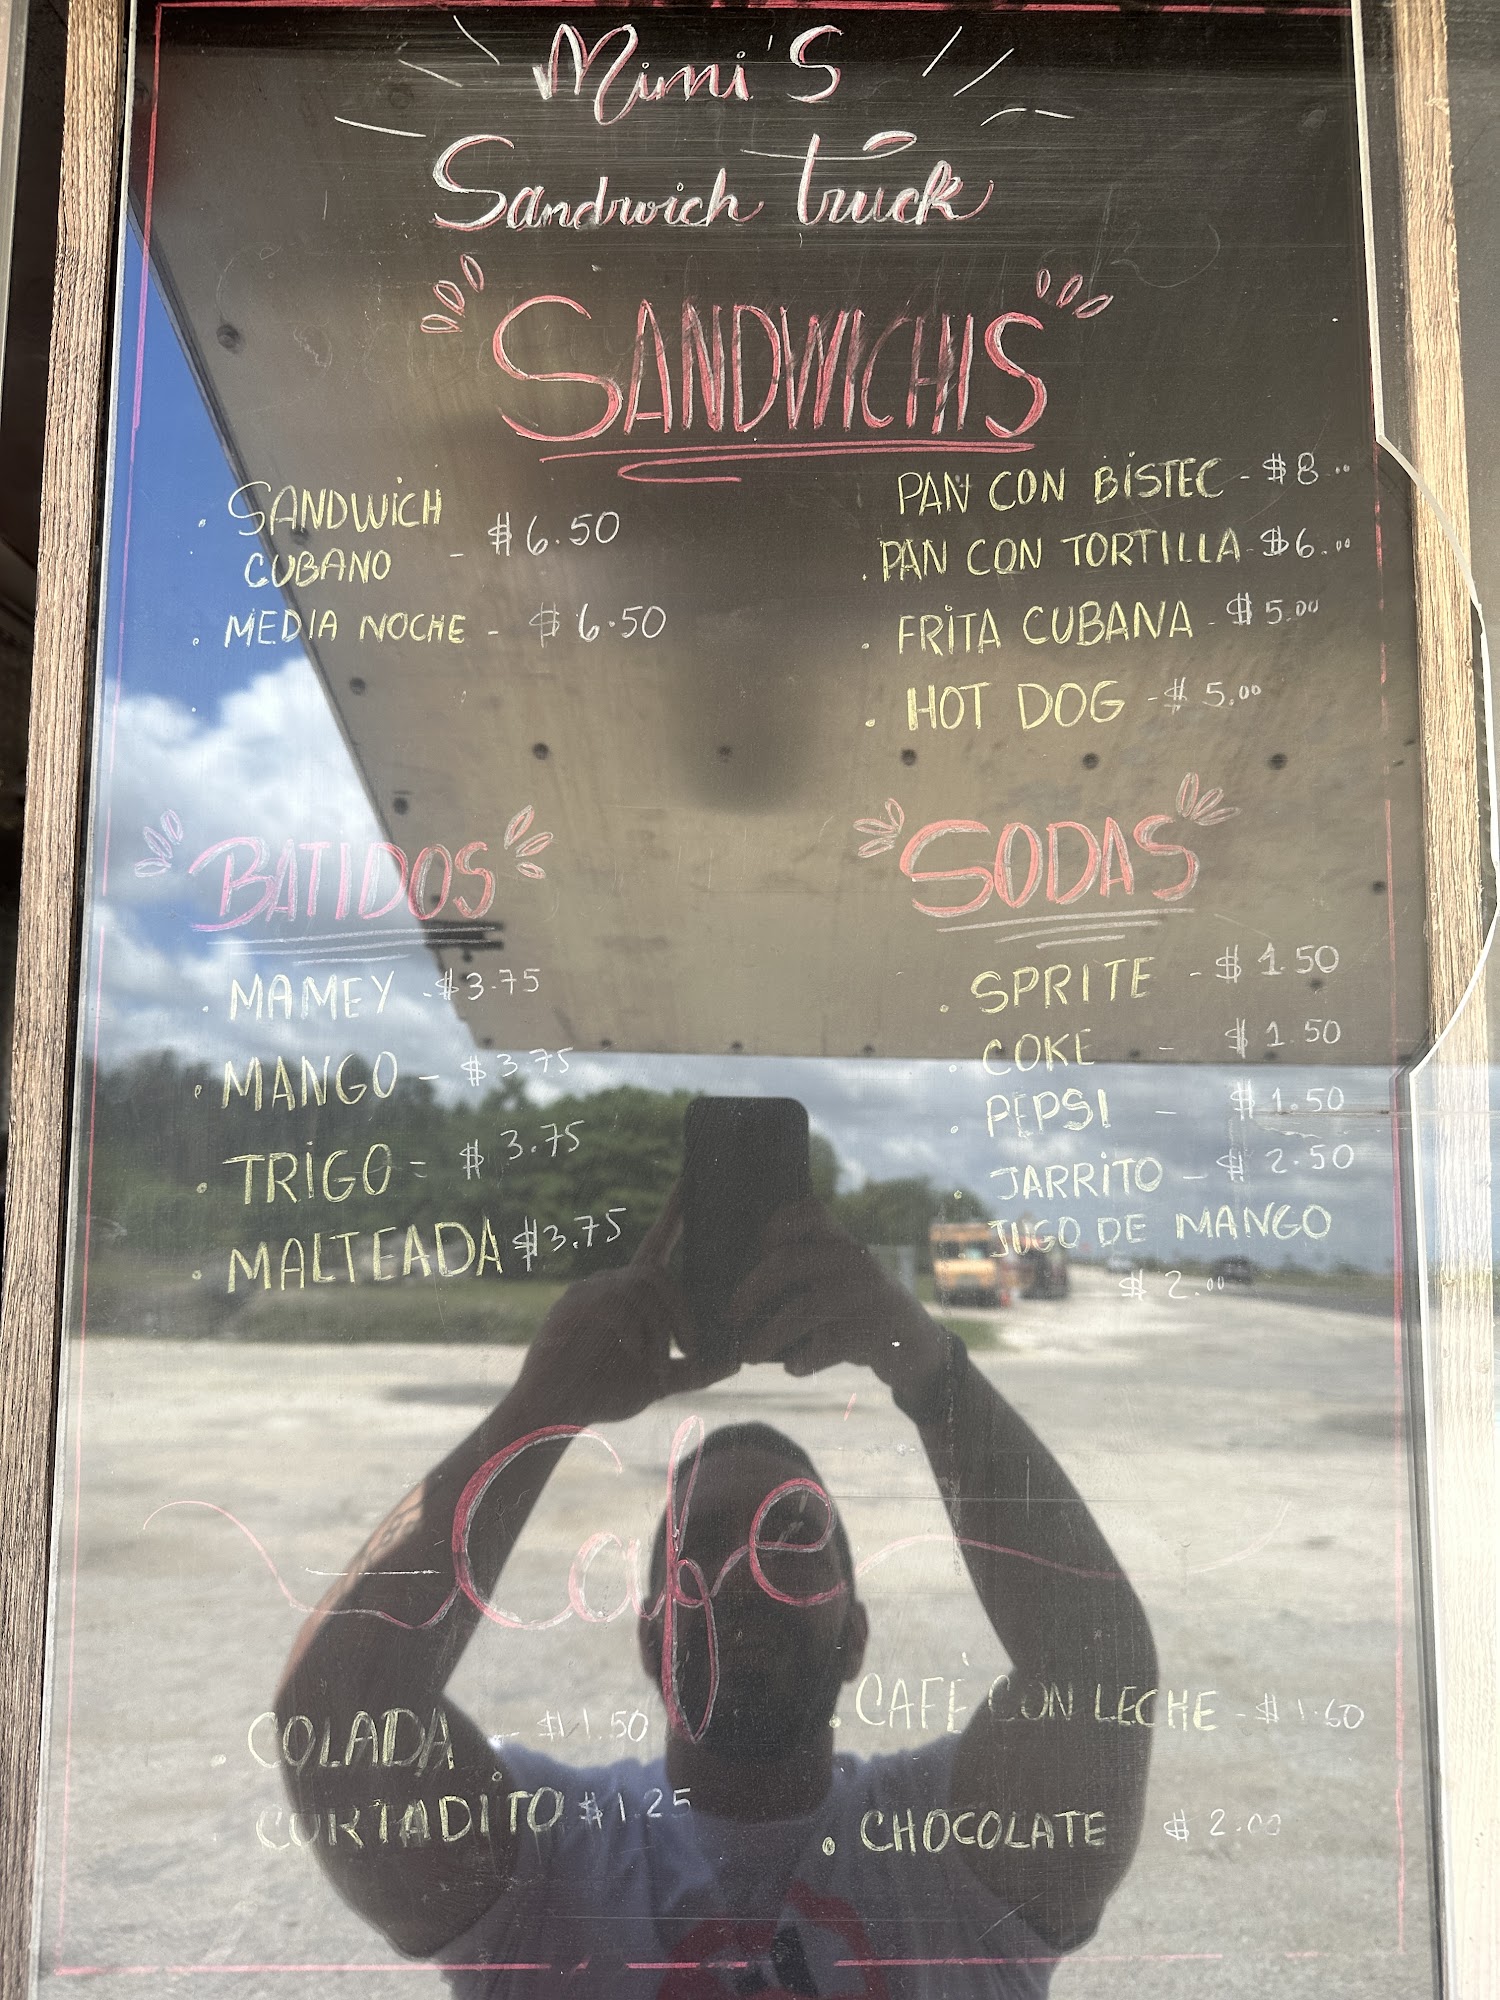 Mimi'S
Sandwich truck
SANDWICHIS
. SANDWiCH
CUBANO - $6.50
. MEDIA NOCHE - $6.50
PAN CON BiSTEC - $8..
. PAN CON TORTILLA - $6.00
. FRiTA CUBANA - $5.00
. HOT DOG - $5.00
BATIDOS
. MAMEY - $3.75
. MANGO - $3.75
. TRiGO = $3.75
. MALTEADA $3.75
SODAS
. SPRITE - $1.50
. COKE - $1.50
. PEPSI - $1.50
. JARRiTO - $2.50
JUGO DE MANGO
$2.00
Café
. COLADA - $1.50
CORTADiTO $1.25
. CAFÉ CON LECHE - $1.50
. CHOCOLATE $2.00